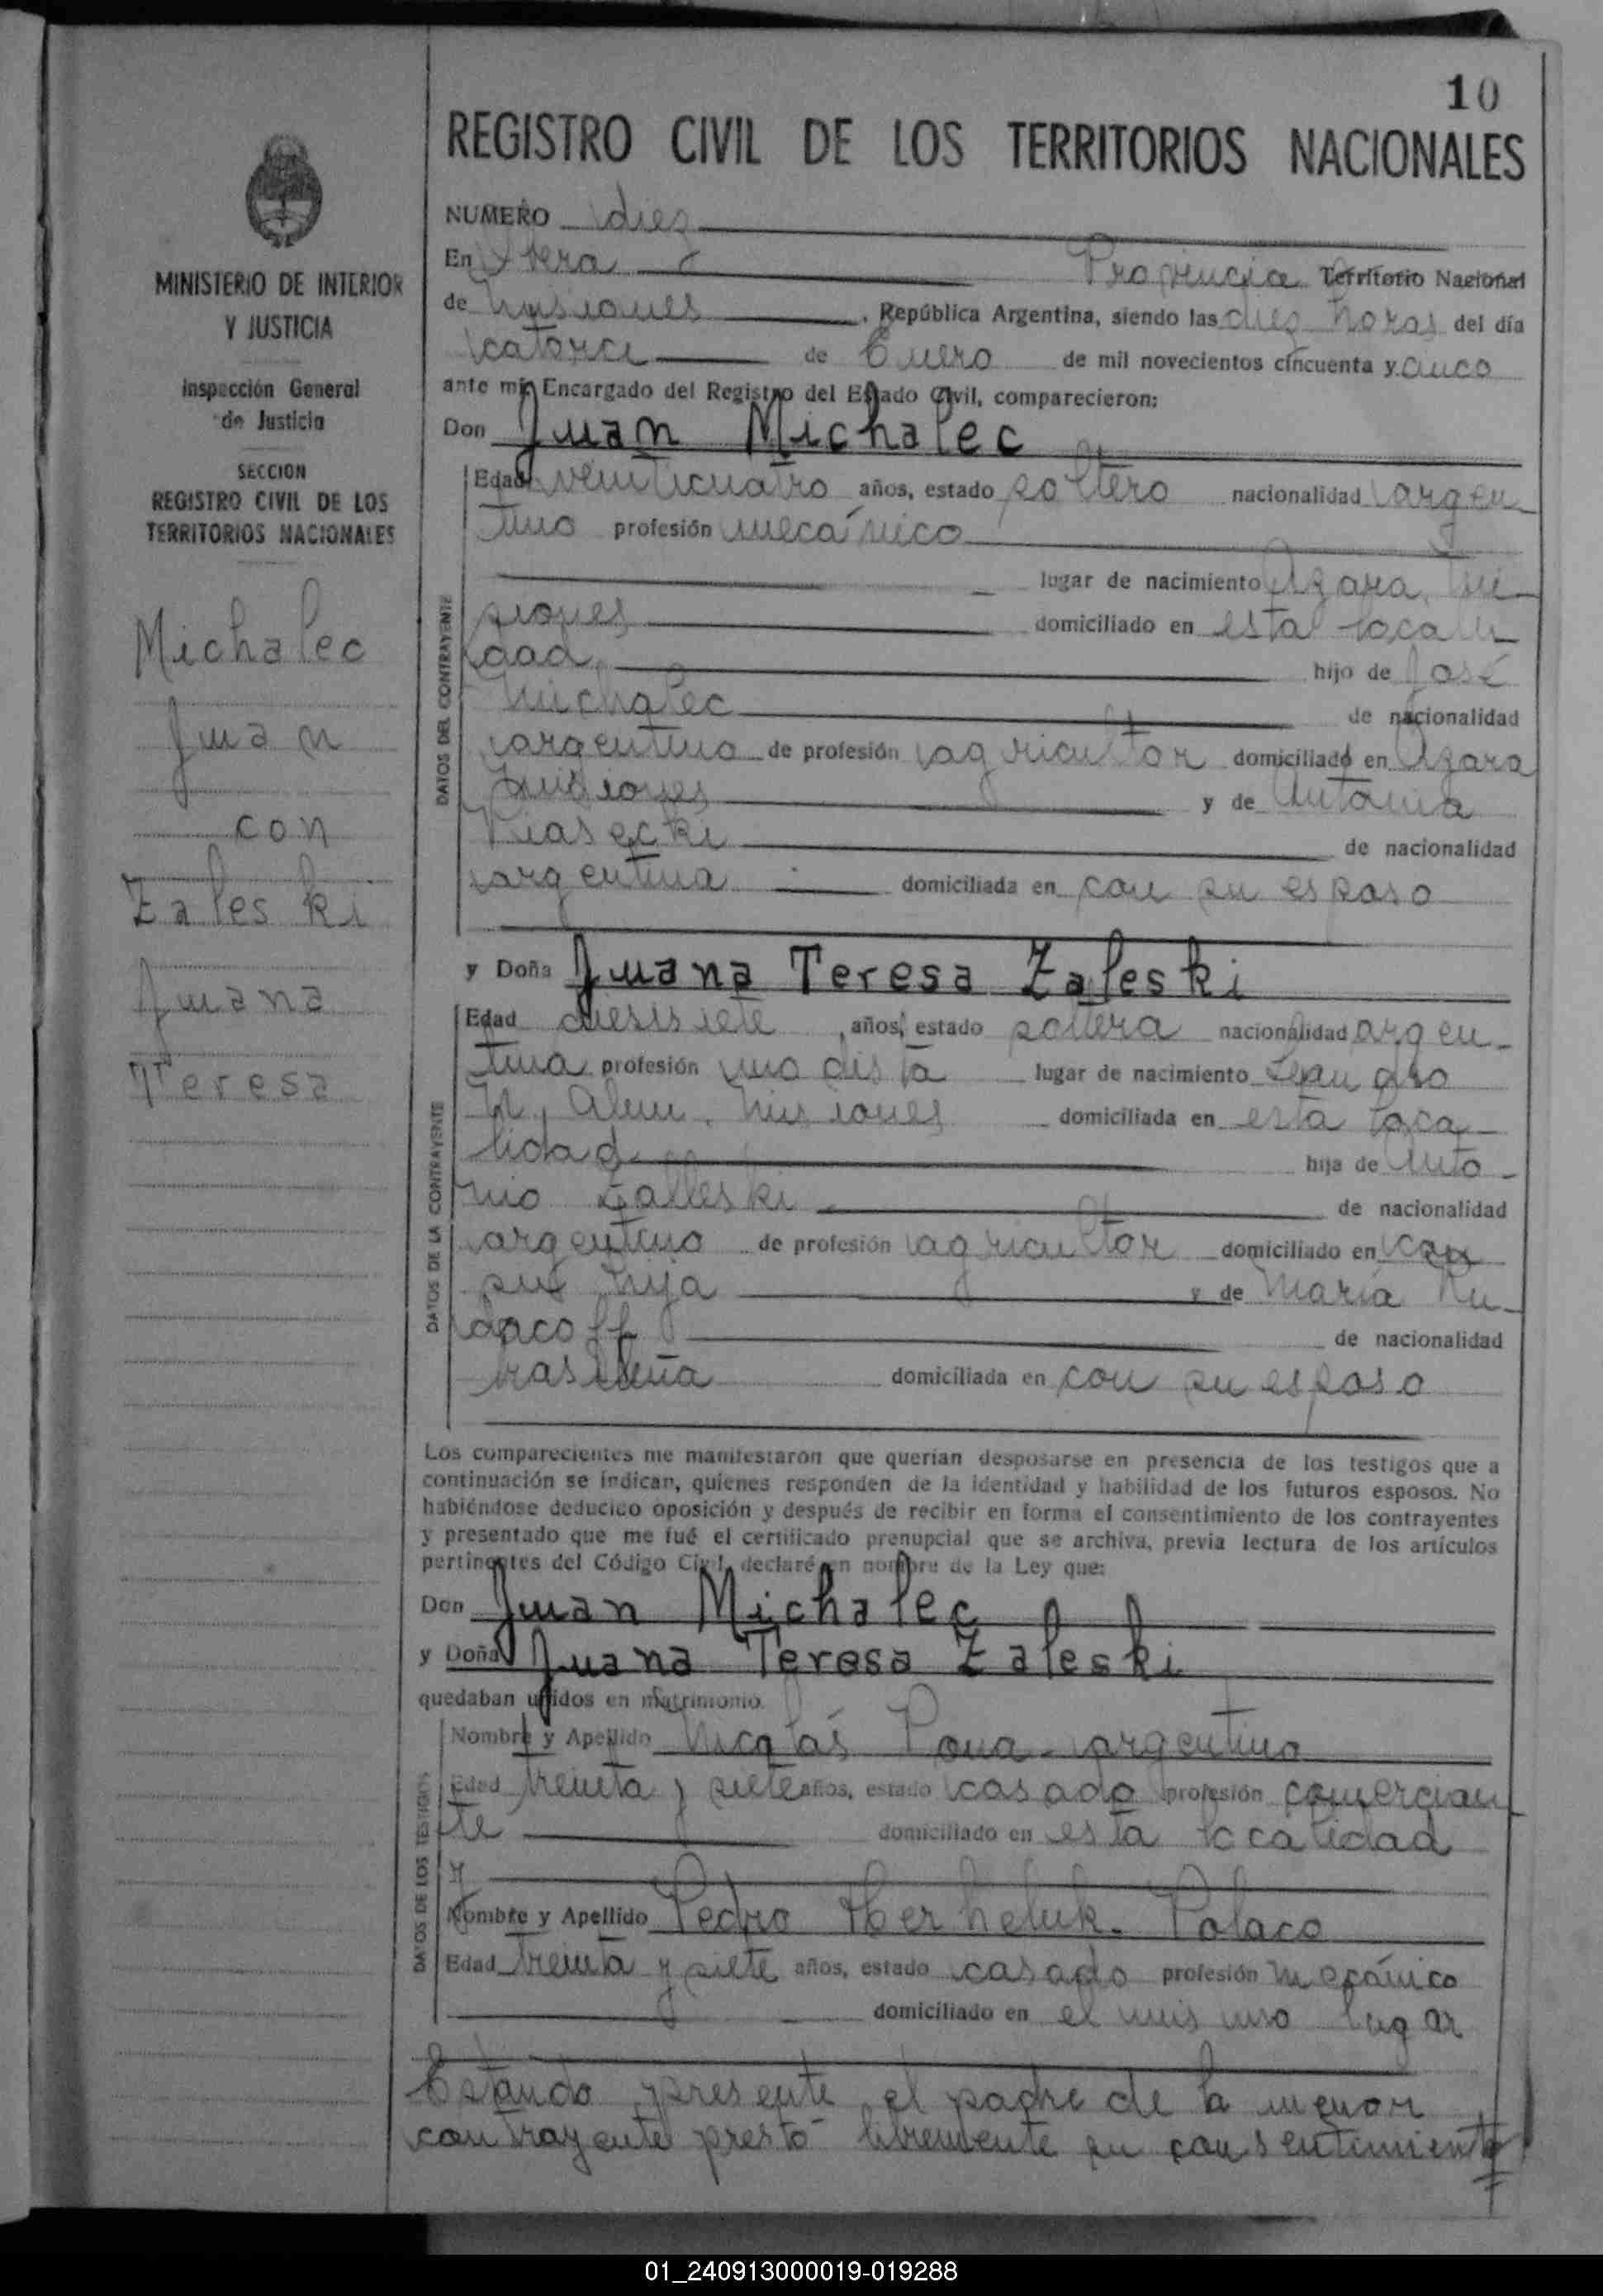 10
REGISTRO CIVIL DE LOS TERRITORIOS NACIONALES
MINISTERIO DE INTERIOR
Y JUSTICIA
Inspección General
de Justicia
SECCION
REGISTRO CIVIL DE LOS
TERRITORIOS NACIONALES
Michalec
Juan
con
Zaleski
Juana
Teresa
NUMERO diez
En Oberá Provincia Territorio Nacional
de Misiones, República Argentina, siendo las diez horas del día
catorce de Enero de mil novecientos cincuenta y cinco
ante mi, Encargado del Registro del Estado Civil, comparecieron:
Don Juan Michalec
DATOS DEL CONTRAYENTE
Edad veinticuatro años, estado soltero nacionalidad argen
tino profesión mecánico
lugar de nacimiento Azara, Mi-
siones domiciliado en esta locali
dad, hijo de José
Michalec de nacionalidad
argentino de profesión agricultor domiciliado en Azara
Misiones y de Antonia
Piasecki de nacionalidad
argentina domiciliada en con su esposo
y Doña Juana Teresa Zaleski
DATOS DE LA CONTRAYENTE
Edad diesisiete años, estado soltera nacionalidad argen-
tina profesión modista lugar de nacimiento Leandro
N. Alem, Misiones domiciliada en esta loca-
lidad hija de Anto-
nio Zalleski de nacionalidad
argentino de profesión agricultor domiciliado en con
su hija y de María
de nacionalidad
domiciliada en con su esposo
Los comparecientes me manifestaron que querían desposarse en presencia de los testigos que a
continuación se indican, quienes responden de la identidad y habilidad de los futuros esposos. No
habiéndose deducido oposición y después de recibir en forma el consentimiento de los contrayentes
y presentado que me fué el certificado prenupcial que se archiva, previa lectura de los artículos
pertinentes del Código Civil, declaré en nombre de la Ley que:
Don Juan Michalec
y Doña Juana Teresa Zaleski
quedaban unidos en matrimonio.
DATOS DE LOS TESTIGOS
Nombre y Apellido Nicolás argentino
Edad treinta y siete años, estado casado profesión comercian
te domiciliado en esta localidad
y
Nombre y Apellido Pedro Polaco
Edad treinta y siete años, estado casado profesión mecánico
domiciliado en el mismo lugar
Estando presente el padre de la menor
contrayente prestó libremente su consentimiento
01_240913000019-019288